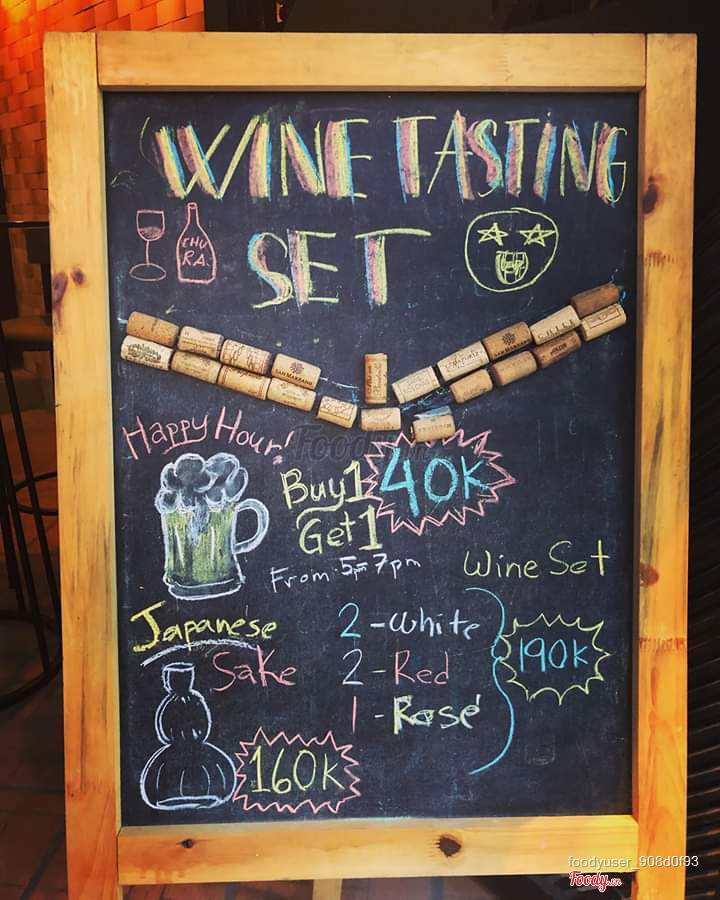 WINE TASTING
SET
CHU
RA
SAN MARZANO
SAN MARZANO
Happy Hour!
Buy 1
Get 1
40K
From 5pm 7pm
Wine Set
2 - White
2 - Red
1 - Rosé
190K
Japanese
Sake
160K
foodyuser_908d0f93
Foody.vn